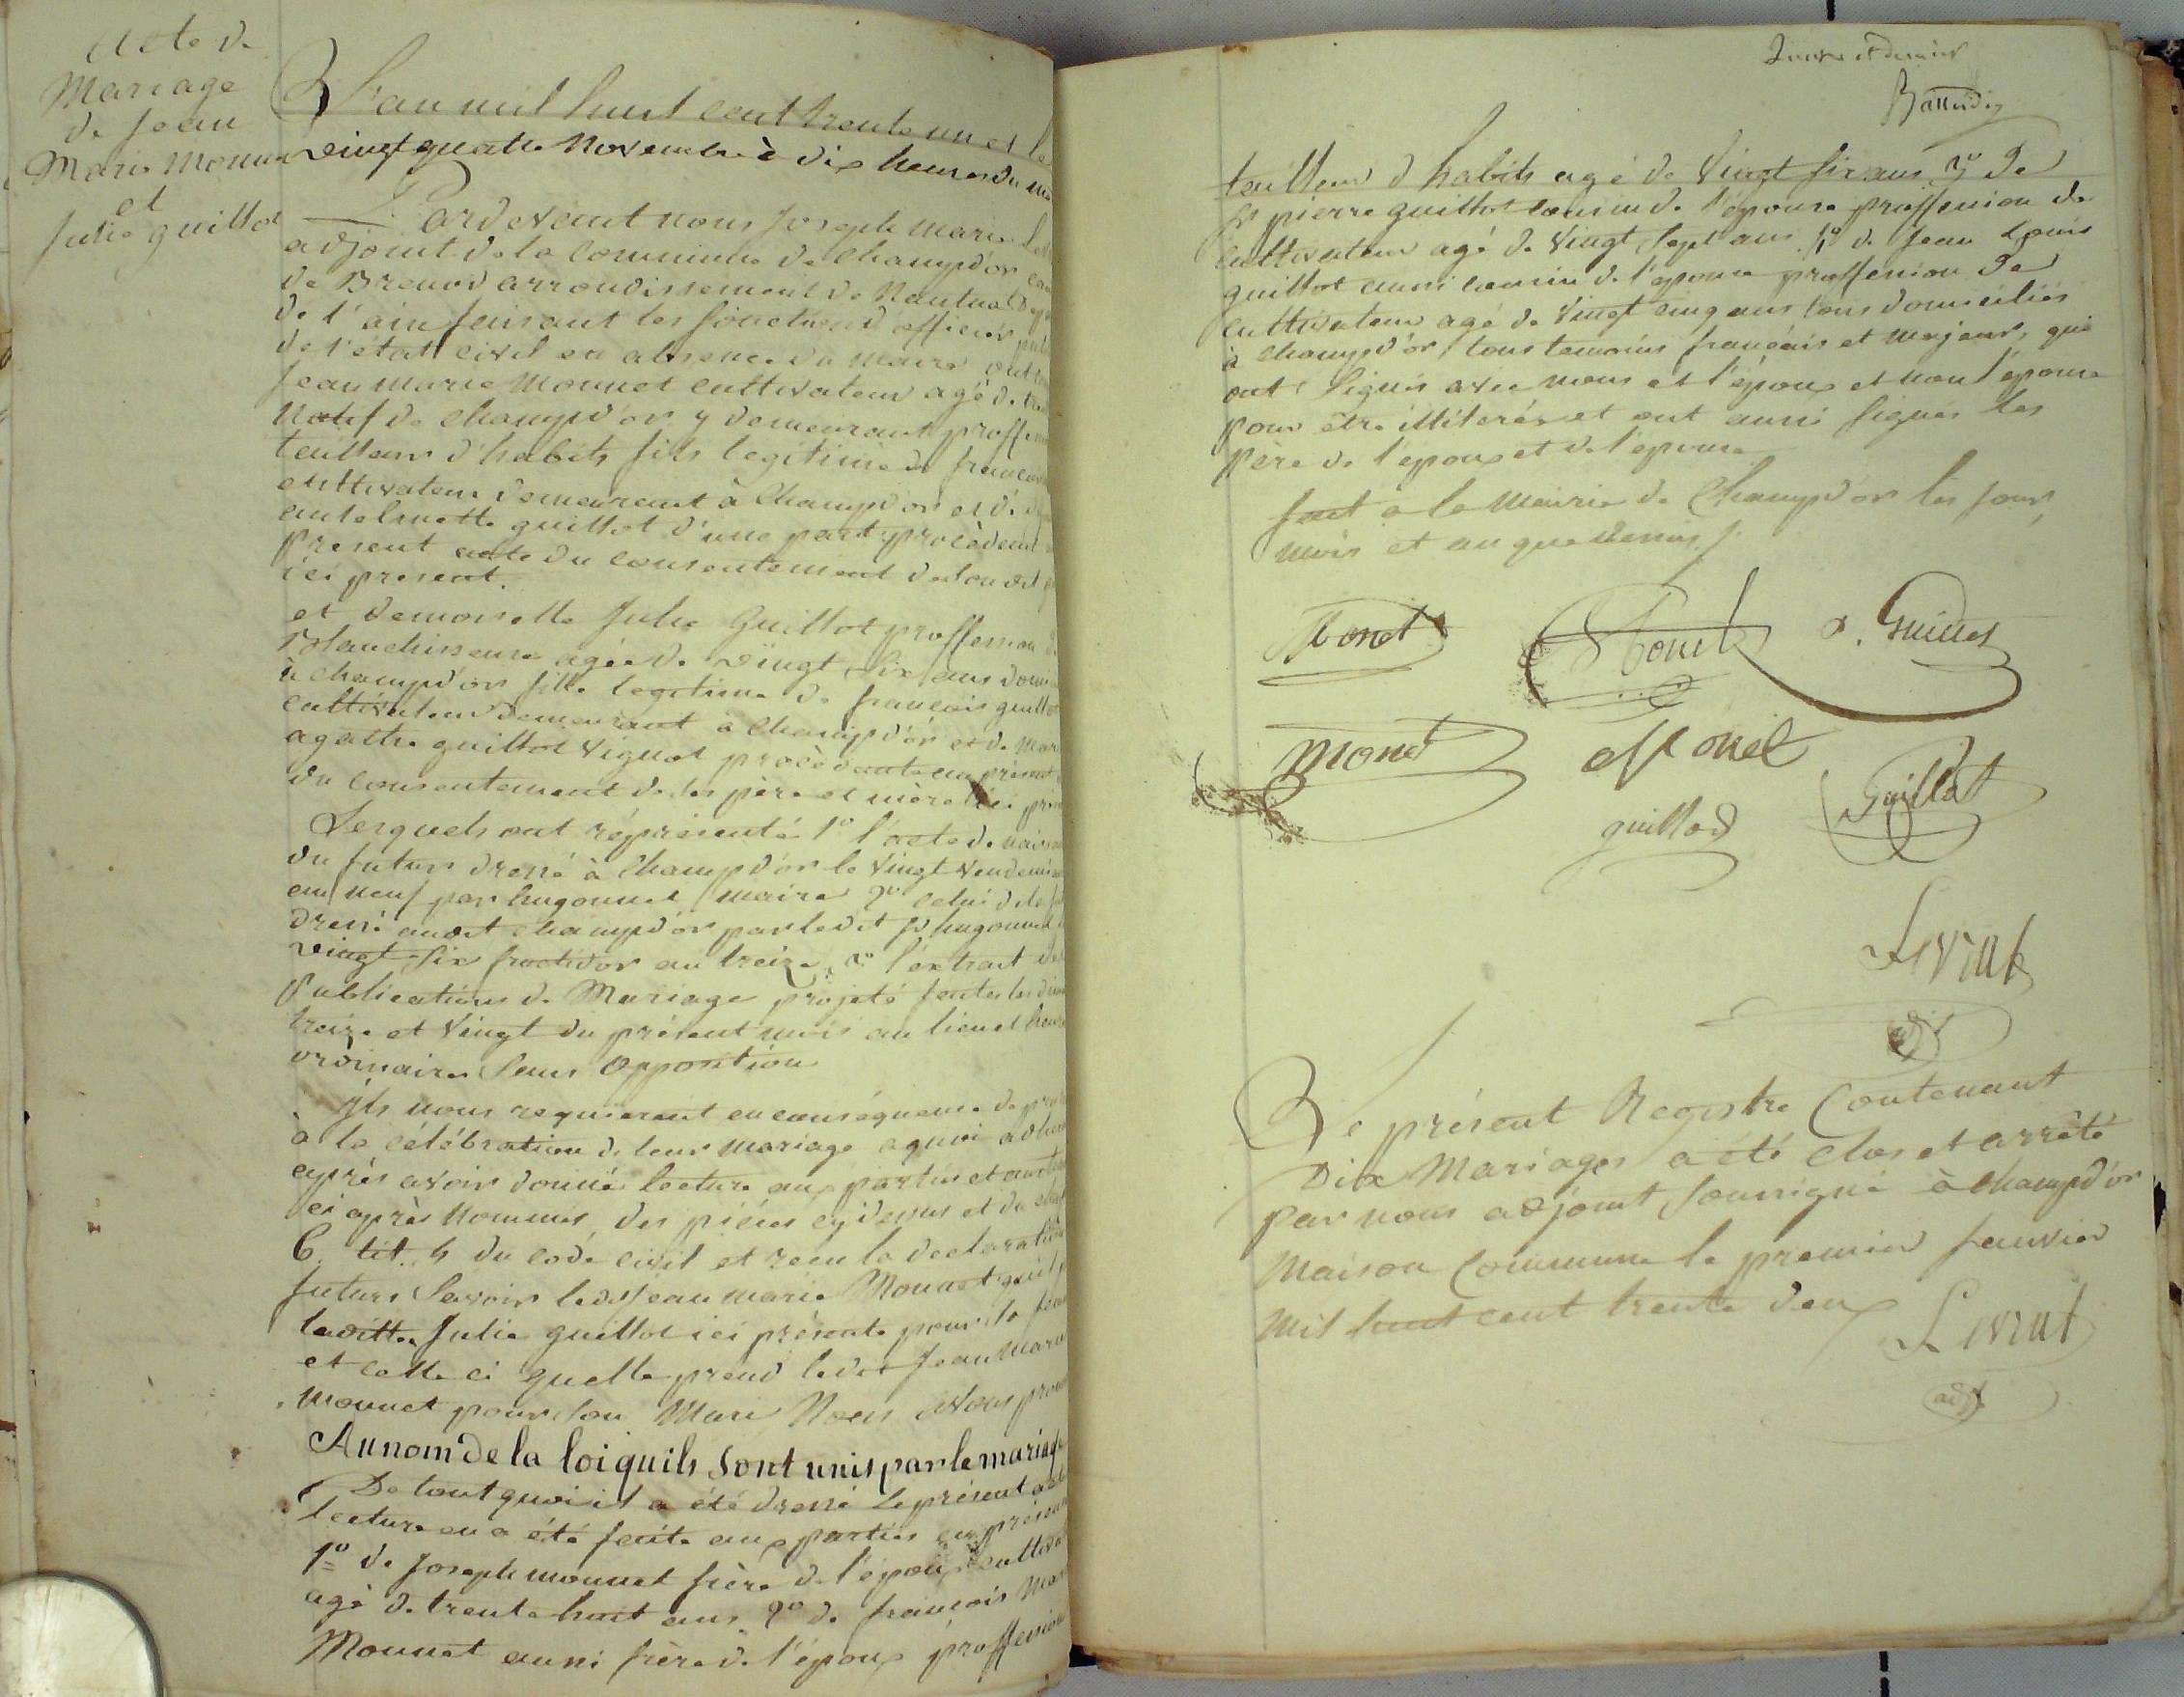 Acte de
Mariage
de Jean
Marie Monnet
et
Julie guillot
L'an mil huit cent trente un et le
vingt quatre Novembre à dix heures du
Pardevant nous Joseph Marie
adjoint de la Commune de Champd'or
de Brenod arrondissement de Nantua
de l'ain faisant les fonctions d'officier
de l'état civil en absence du maire
Jean Marie Monnet cultivateur agé de
Natif de Champd'or y demeurant proffession
tailleur d'habits fils legitime de francois
cultivateur demeurant à Champd'or et de
antelmette guillot d'une part procèdant
present acte du consentement de son dit
ici present.
et demoiselle Julie Guillot proffession
Blanchisseuse agée de vingt six ans
à Champd'or fille legitime de francois guillot
cultivateur demeurant à Champd'or et de
agathe guillot vignot procèdante au présent
du consentement de ses père et mère ici
Lesquels ont réprésenté 1o l'acte de
du futur dressé à Champd'or le vingt
an neuf par hugonnet maire 2o celui de la
dressé audit Champd'or par ledit sr hugonnet
vingt six fructidor an treize 3o l'extrait
Publications de Mariage projeté faites les
treize et vingt du présent mois au lieu et heure
ordinaires sans opposition
Ils nous requierent en conséquence de
à la célébration de leur mariage a quoi
après avoir donné lecture aux parties et
ci après nommés des pièces cy dessus et du
6. tit. 5 du code civil et reçu la declaration
futurs Savoir ledit Jean Marie Monnet
laditte Julie guillot ici présente pour sa
et celle ci quelle prend ledit Jean Marie
Monnet pour son Mari Nous avons
Au nom de la loi quils sont unis par le mariage
De tout quoi il a été dressé le présent acte
lecture en a été faite aux parties en présence
1o de Joseph monnet frère de l'époux
agé de trente huit ans 2o de francois
Monnet aussi frère de l'époux proffession
tailleur d'habits agé de vingt six ans 3o de
sr pierre guillot cousin de l'épouse proffession de
cultivateur agé de vingt sept ans 4o de Jean Louis
guillot aussi cousin de l'épouse proffession de
cultivateur agé de vingt cinq ans tous domiciliés
à Champd'or tous temoins français et majeurs, qui
ont signés avec nous et l'époux et non l'épouse
pour être illiterée et ont aussi signés les
père de l'époux et de l'épouse
fait à la Mairie de Champd'or les jour,
mois et an que dessus
Monet
Monet
Guillot
Monet
Monet
guillod
Guillot
Livrat
adjt
Le présent Registre Contenant
Dix Mariages a été clos et arrêté
par nous adjoint soussigné à Champd'or
Maison Commune le premier Janvier
Mil huit cent trente deux
Livrat
adjt